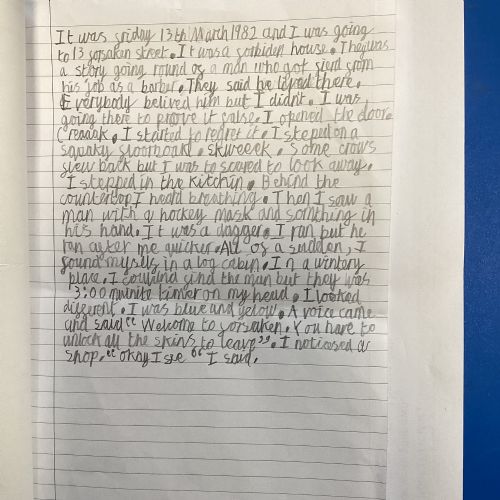 It was friday 13th March 1982 and I was going
to 13 forsaken street. It was a forbiden house. They was
a story going round of a man who got fierd from
his job as a barbur. They said he lived there.
Everybody belived him but I didnt. I was
going there to prove it false. I opened the door.
Creaaak. I started to regret it. I steped on a
squaky floorboard. Skweeek. Some crows
flew back but I was to scared to look away.
I stepped in the kitchin. Behind the
countertop I heard breathing. Then I saw a
man with a hockey mask and somthing in
his hand. It was a dagger. I ran but he
ran after me quicker. All of a sudden, I
found myself in a log cabin. In a wintery
place. I couldnd find the man but they was
3:00 minite timer on my head. I looked
different. I was blue and yelow. A voice came
and said "Welcome to forsaken. You have to
unlock all the skins to leave". I noticed a
shop. "okay I see" I said.